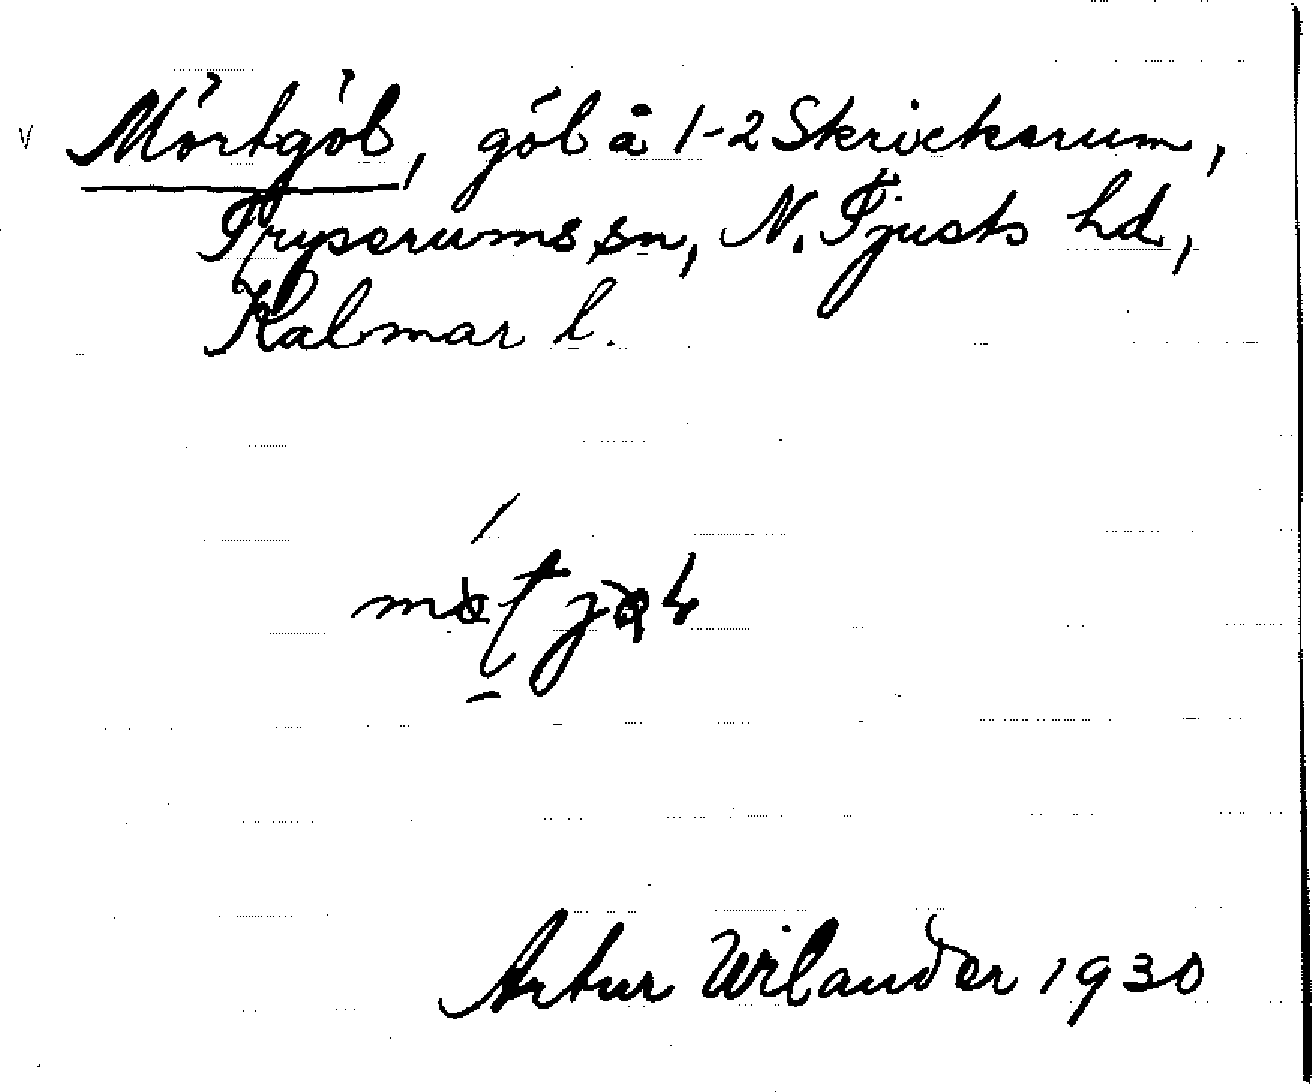 Mörtgöl, göl å 1-2 Skrickerum,
Tryserums sn, N. Tjusts hd,
Kalmar l.
Artur Wilander 1930